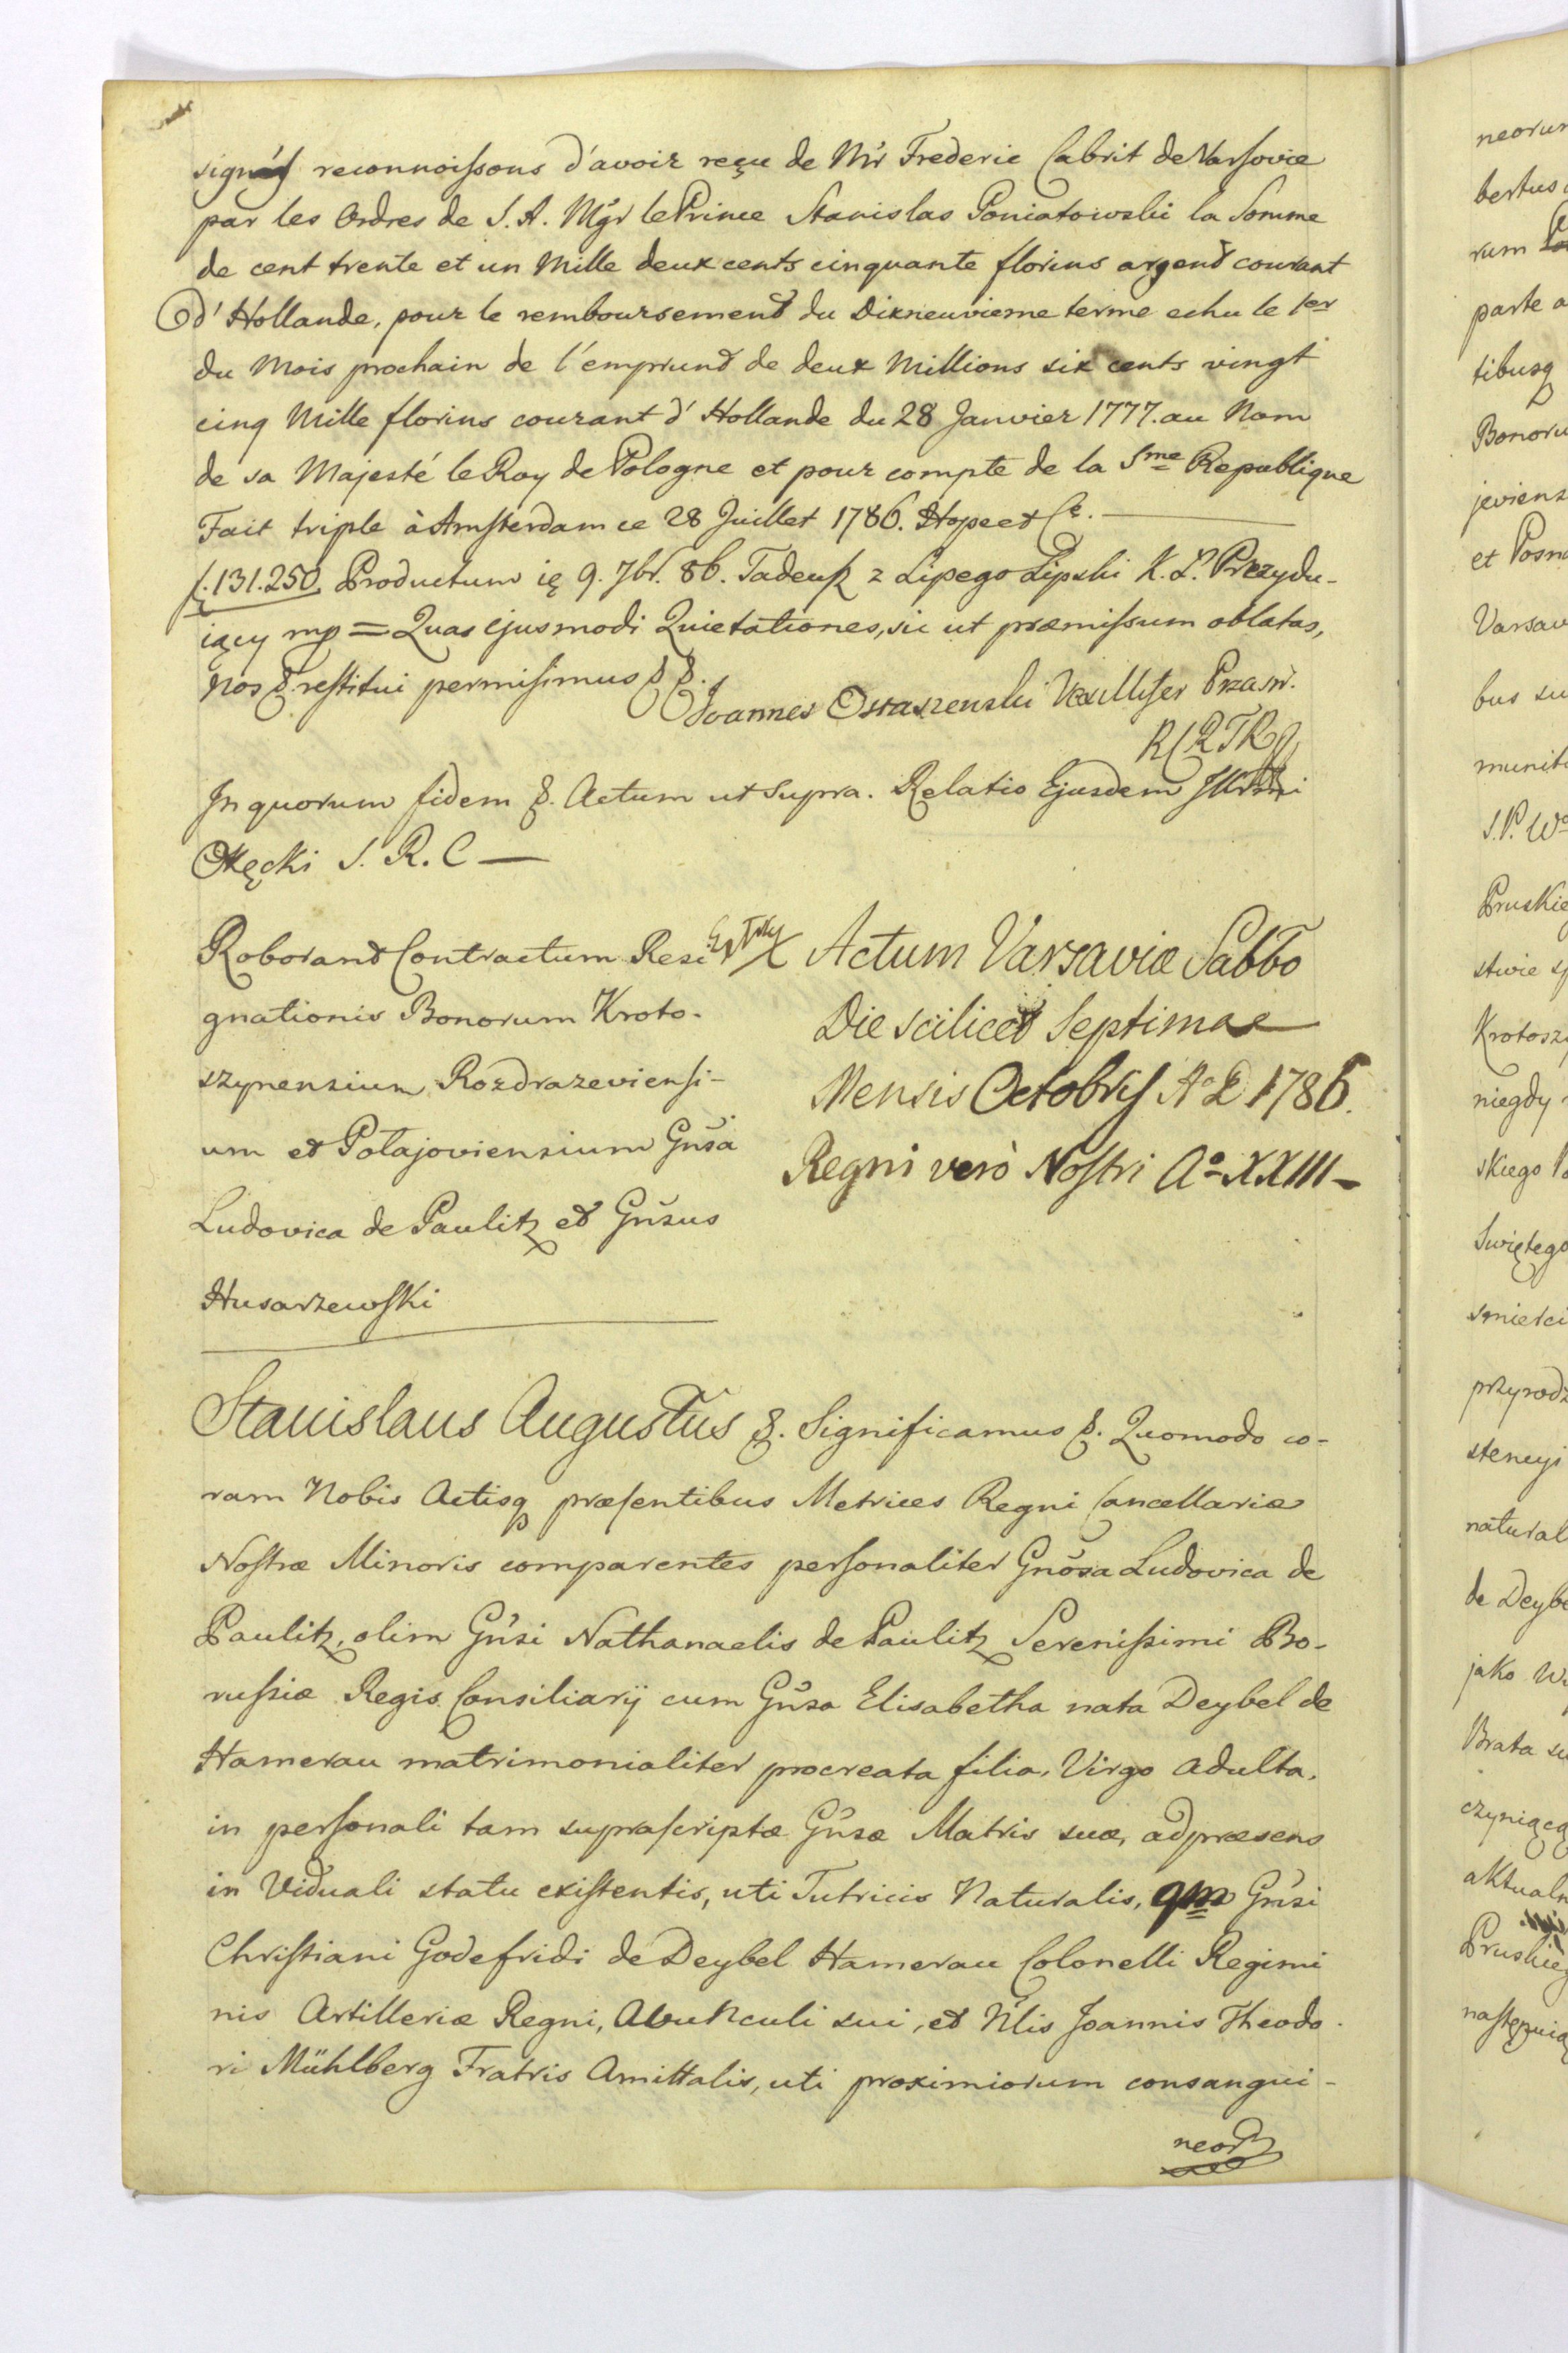 signés reconnoissons d'avoir reçu de Mr Frederic Cabrit de Varsovie
par les Ordres de S. A. Mgr le Prince Stanislas Poniatowski la Somme
de cent trente et un Mille deux cents cinquante florins argent courant
d'Hollande, pour le remboursement du Dixneuvieme terme echu le 1er
du Mois prochain de l'emprunt de deux Millions six cents vingt
cinq Mille florins courant d'Hollande du 28 Janvier 1777. au Nom
de sa Majesté le Roy de Pologne et pour compte de la Sme Republique
Fait triple à Amsterdam ce 28 Juillet 1786. Hope et Ce.
f. 131.250. Productum ię 9. 7br. 86. Tadeusz z Lipego Lipski K. Ł. Prezydu-
iący mp = Quas ejusmodi Quietationes, sic ut præmissum oblatas,
nos &. restitui permisimus & &.
Joannes Ostaszewski Vexillifer Przasn.
In quorum fidem &. Actum ut supra. Relatio Ejusdem
Okęcki S. R. C
Roborant Contractum Resi
gnationis Bonorum Kroto-
szynensium Rozdrazeviensi-
um et Potajoviensium Gnsa
Ludovica de Paulitz et Gnsus
Husarzewski
Actum Varsaviæ Sabbo
Die scilicet Septima
Mensis Octobris Ao D 1786.
Regni verò Nostri Ao XXIII
Stanislaus Augustus &. Significamus &. Quomodo co-
ram Nobis Actisq præsentibus Metrices Regni Cancellariæ
Nostræ Minoris comparentes personaliter Gnosa Ludovica de
Paulitz, olim Gnsi Nathanaelis de Paulitz Serenissimi Bo-
russiæ Regis Consiliarij cum Gnsa Elisabetha nata Deybel de
Hamerau matrimonialiter procreata filia, Virgo adulta,
in personali tam suprascriptæ Gnsæ Matris suæ, ad præsens
in Viduali statu existentis, uti Tutricis Naturalis, qm Gnsi
Christiani Godefridi de Deybel Hamerau Colonelli Regimi
nis Artilleriæ Regni, Avunculi sui, et Nlis Joannis Theodo-
ri Mühlberg Fratris Amittalis, uti proximiorum consangui-
neor
neorum
bertus
rum
parte a
tibusq
Bonoru
jeviens
et Posna
Varsav
bus su
munit
S. P. Wo
Pruskie
stwie sp
Krotosz
niegdy
skiego
Swiętego
smierci
przyrodz
stencyi
natural
de Deybe
jako W
Brata su
czyniącą
aktualn
Pruskieg